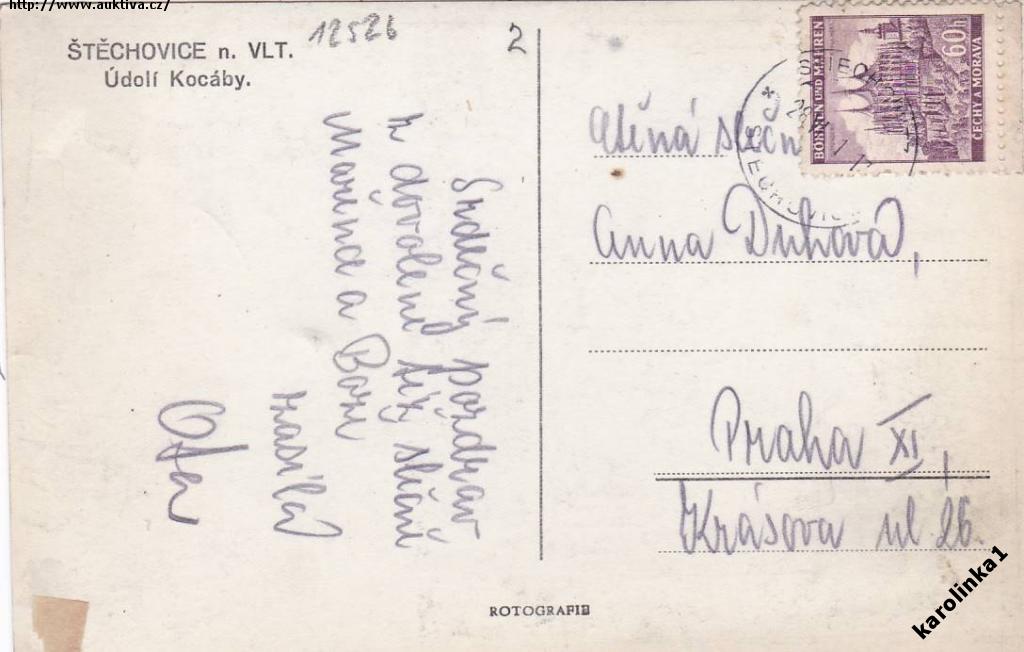 http://www.auktiva.cz/
ŠTĚCHOVICE n. VLT.
Údolí Kocáby.
12526
2
Srdečný pozdrav
z dovolené též slečně
a
zasílá
Ota
BÖHMEN UND MÄHREN
60h
ČECHY A MORAVA
ŠTĚCHOVICE
Ctěná slečn
Anna Duhová,
Praha XI,
Krásova ul 26.
ROTOGRAFIE
karolinka1